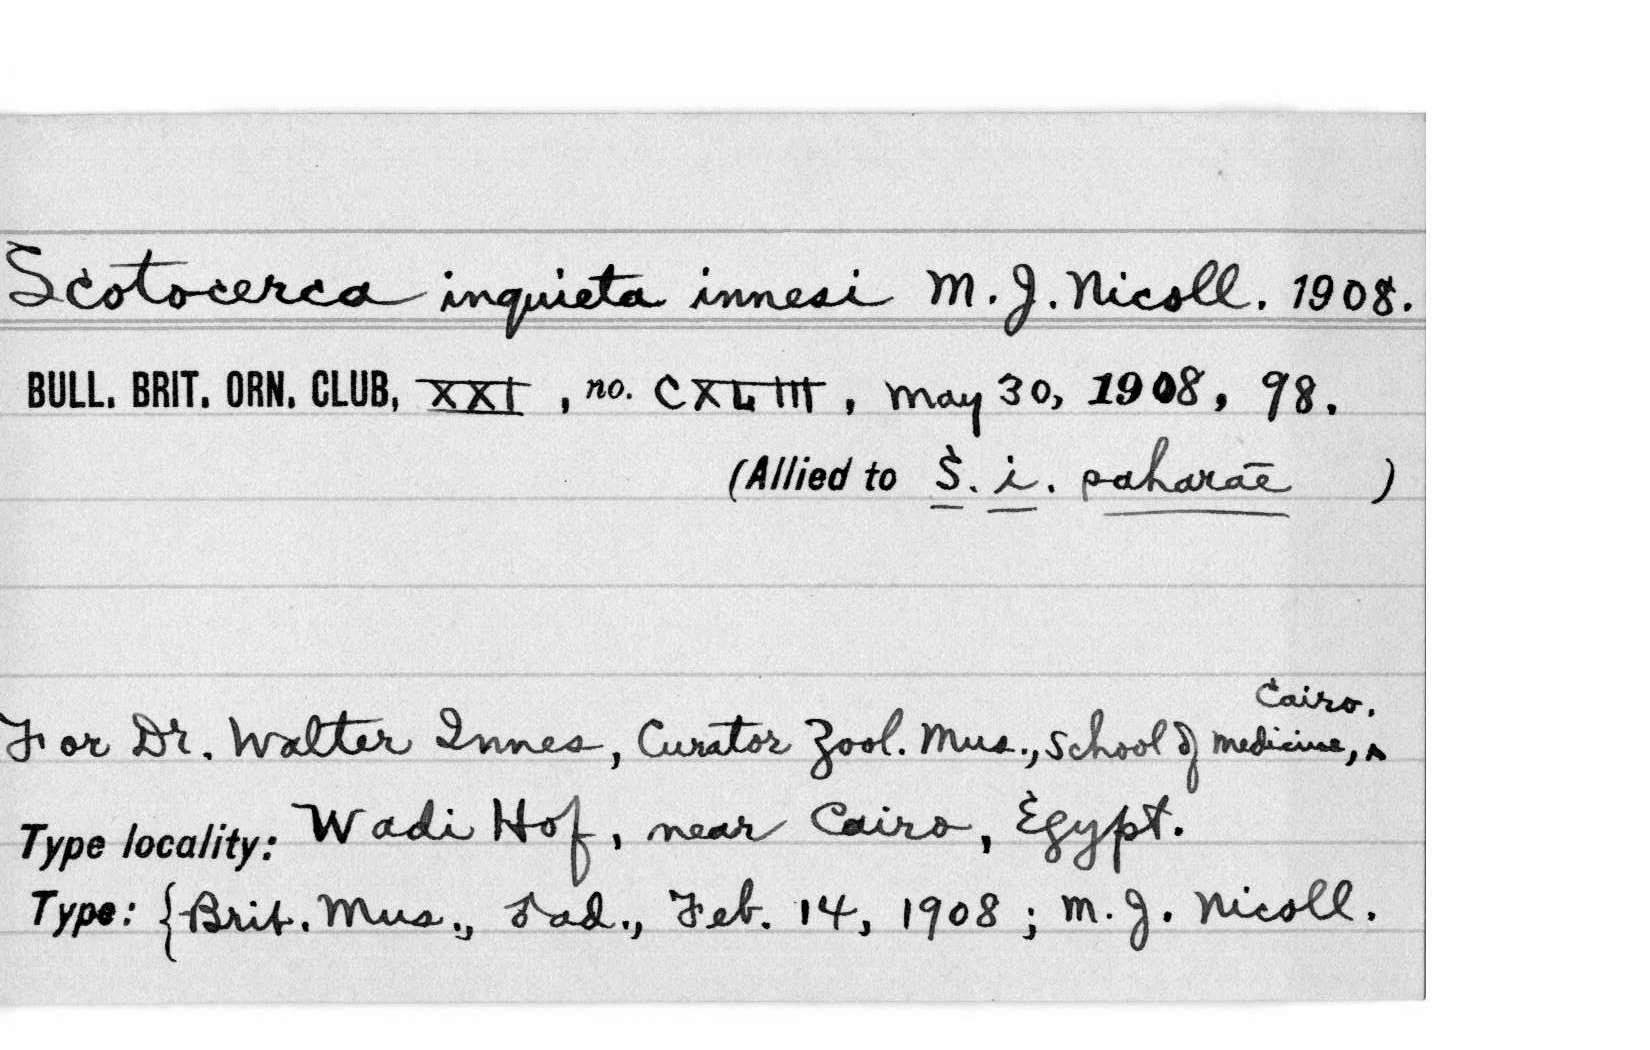 Scotocerca inquieta innesi M. J. Nicoll. 1908.
BULL. BRIT. ORN. CLUB, XXI, no. CXLIII, May 30, 1908, 98.
(Allied to S. i. saharae)
For Dr. Walter Innes, Curator Zool. Mus., School of Medicine, Cairo.
Type locality: Wadi Hof, near Cairo, Egypt.
Type: {Brit. Mus., ♂ ad., Feb. 14, 1908; M. J. Nicoll.